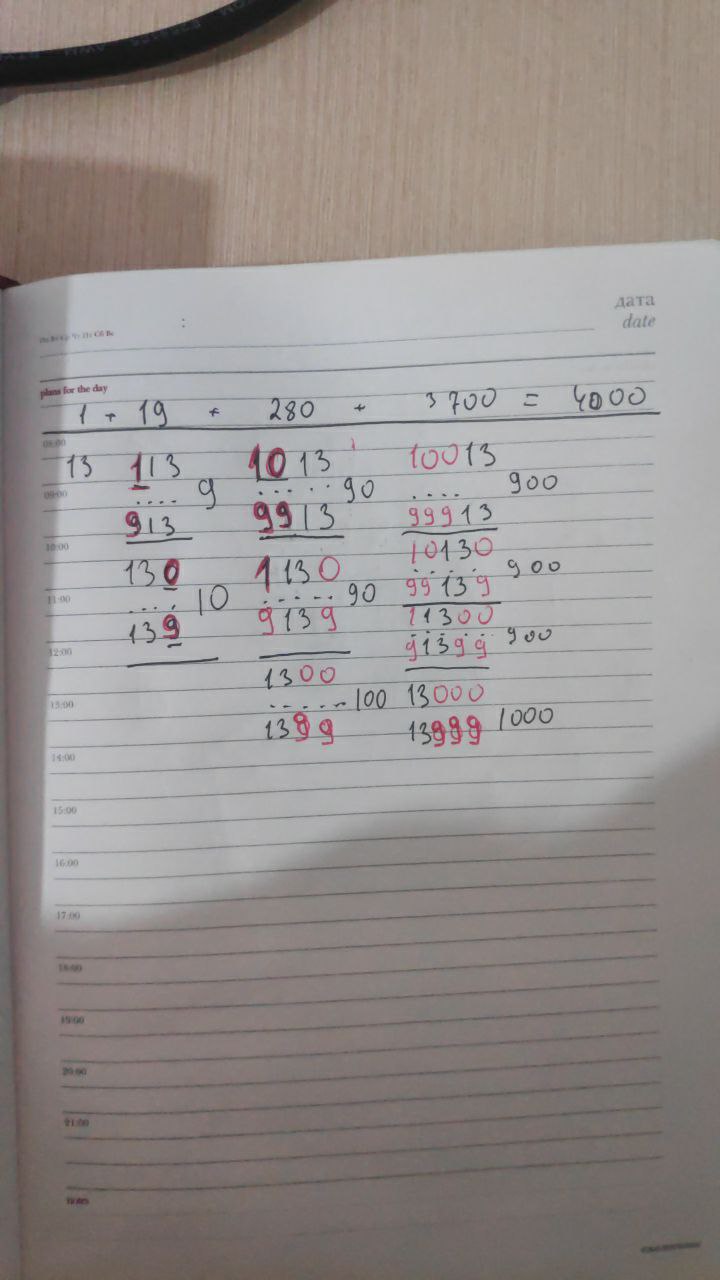 дата
date
Пн Вт Ср Чт Пт Сб Вс :
plans for the day
1 + 19 + 280 + 3700 = 4000
08:00
13 113 1013 10013
09:00
.... 9 ..... 90 .... 900
913 9913 99913
10:00
130 1130 10130
11:00
.... 10 ..... 90 ..... 900
139 9139 99139
11300
12:00
..... 900
91399
1300
13:00
...... 100 13000
1399 13999 1000
14:00
15:00
16:00
17:00
18:00
19:00
20:00
21:00
notes